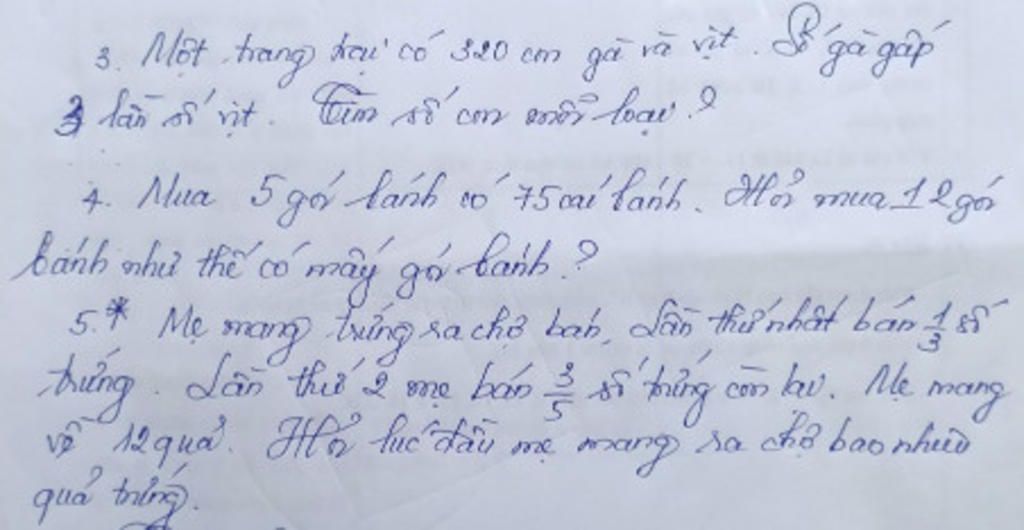 3. Một trang trại có 320 con gà và vịt. Số gà gấp
3 lần số vịt. Tìm số con mỗi loại?
4. Mua 5 gói bánh có 75 cái bánh. Hỏi mua 12 gói
bánh như thế có mấy gói bánh?
5.* Mẹ mang trứng ra chợ bán, Lần thứ nhất bán 1/3 số
trứng. Lần thứ 2 mẹ bán 3/5 số trứng còn lại. Mẹ mang
về 12 quả. Hỏi lúc đầu mẹ mang ra chợ bao nhiêu
quả trứng.